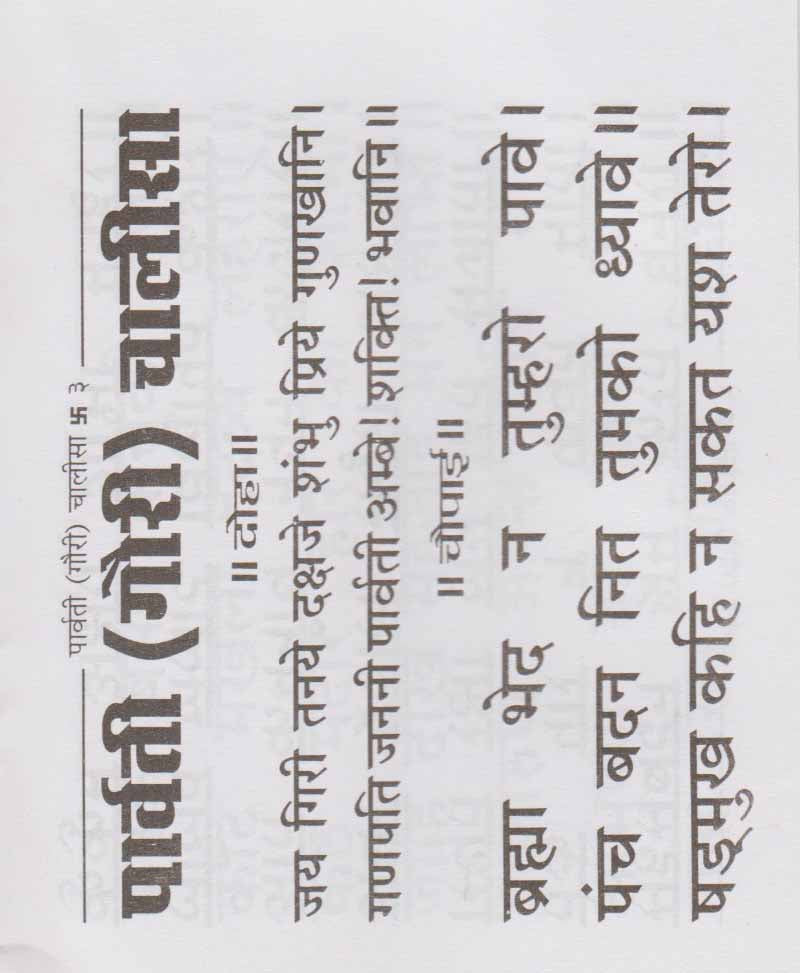 पार्वती (गौरी) चालीसा 卐 ३
पार्वती (गौरी) चालीसा
॥ दोहा॥
जय गिरी तनये दक्षजे शंभु प्रिये गुणखानि।
गणपति जननी पार्वती अम्बे! शक्ति! भवानि॥
॥ चौपाई॥
ब्रह्मा भेद न तुम्हरो पावे।
पंच बदन नित तुमको ध्यावे॥
षड्मुख कहि न सकत यश तेरो।